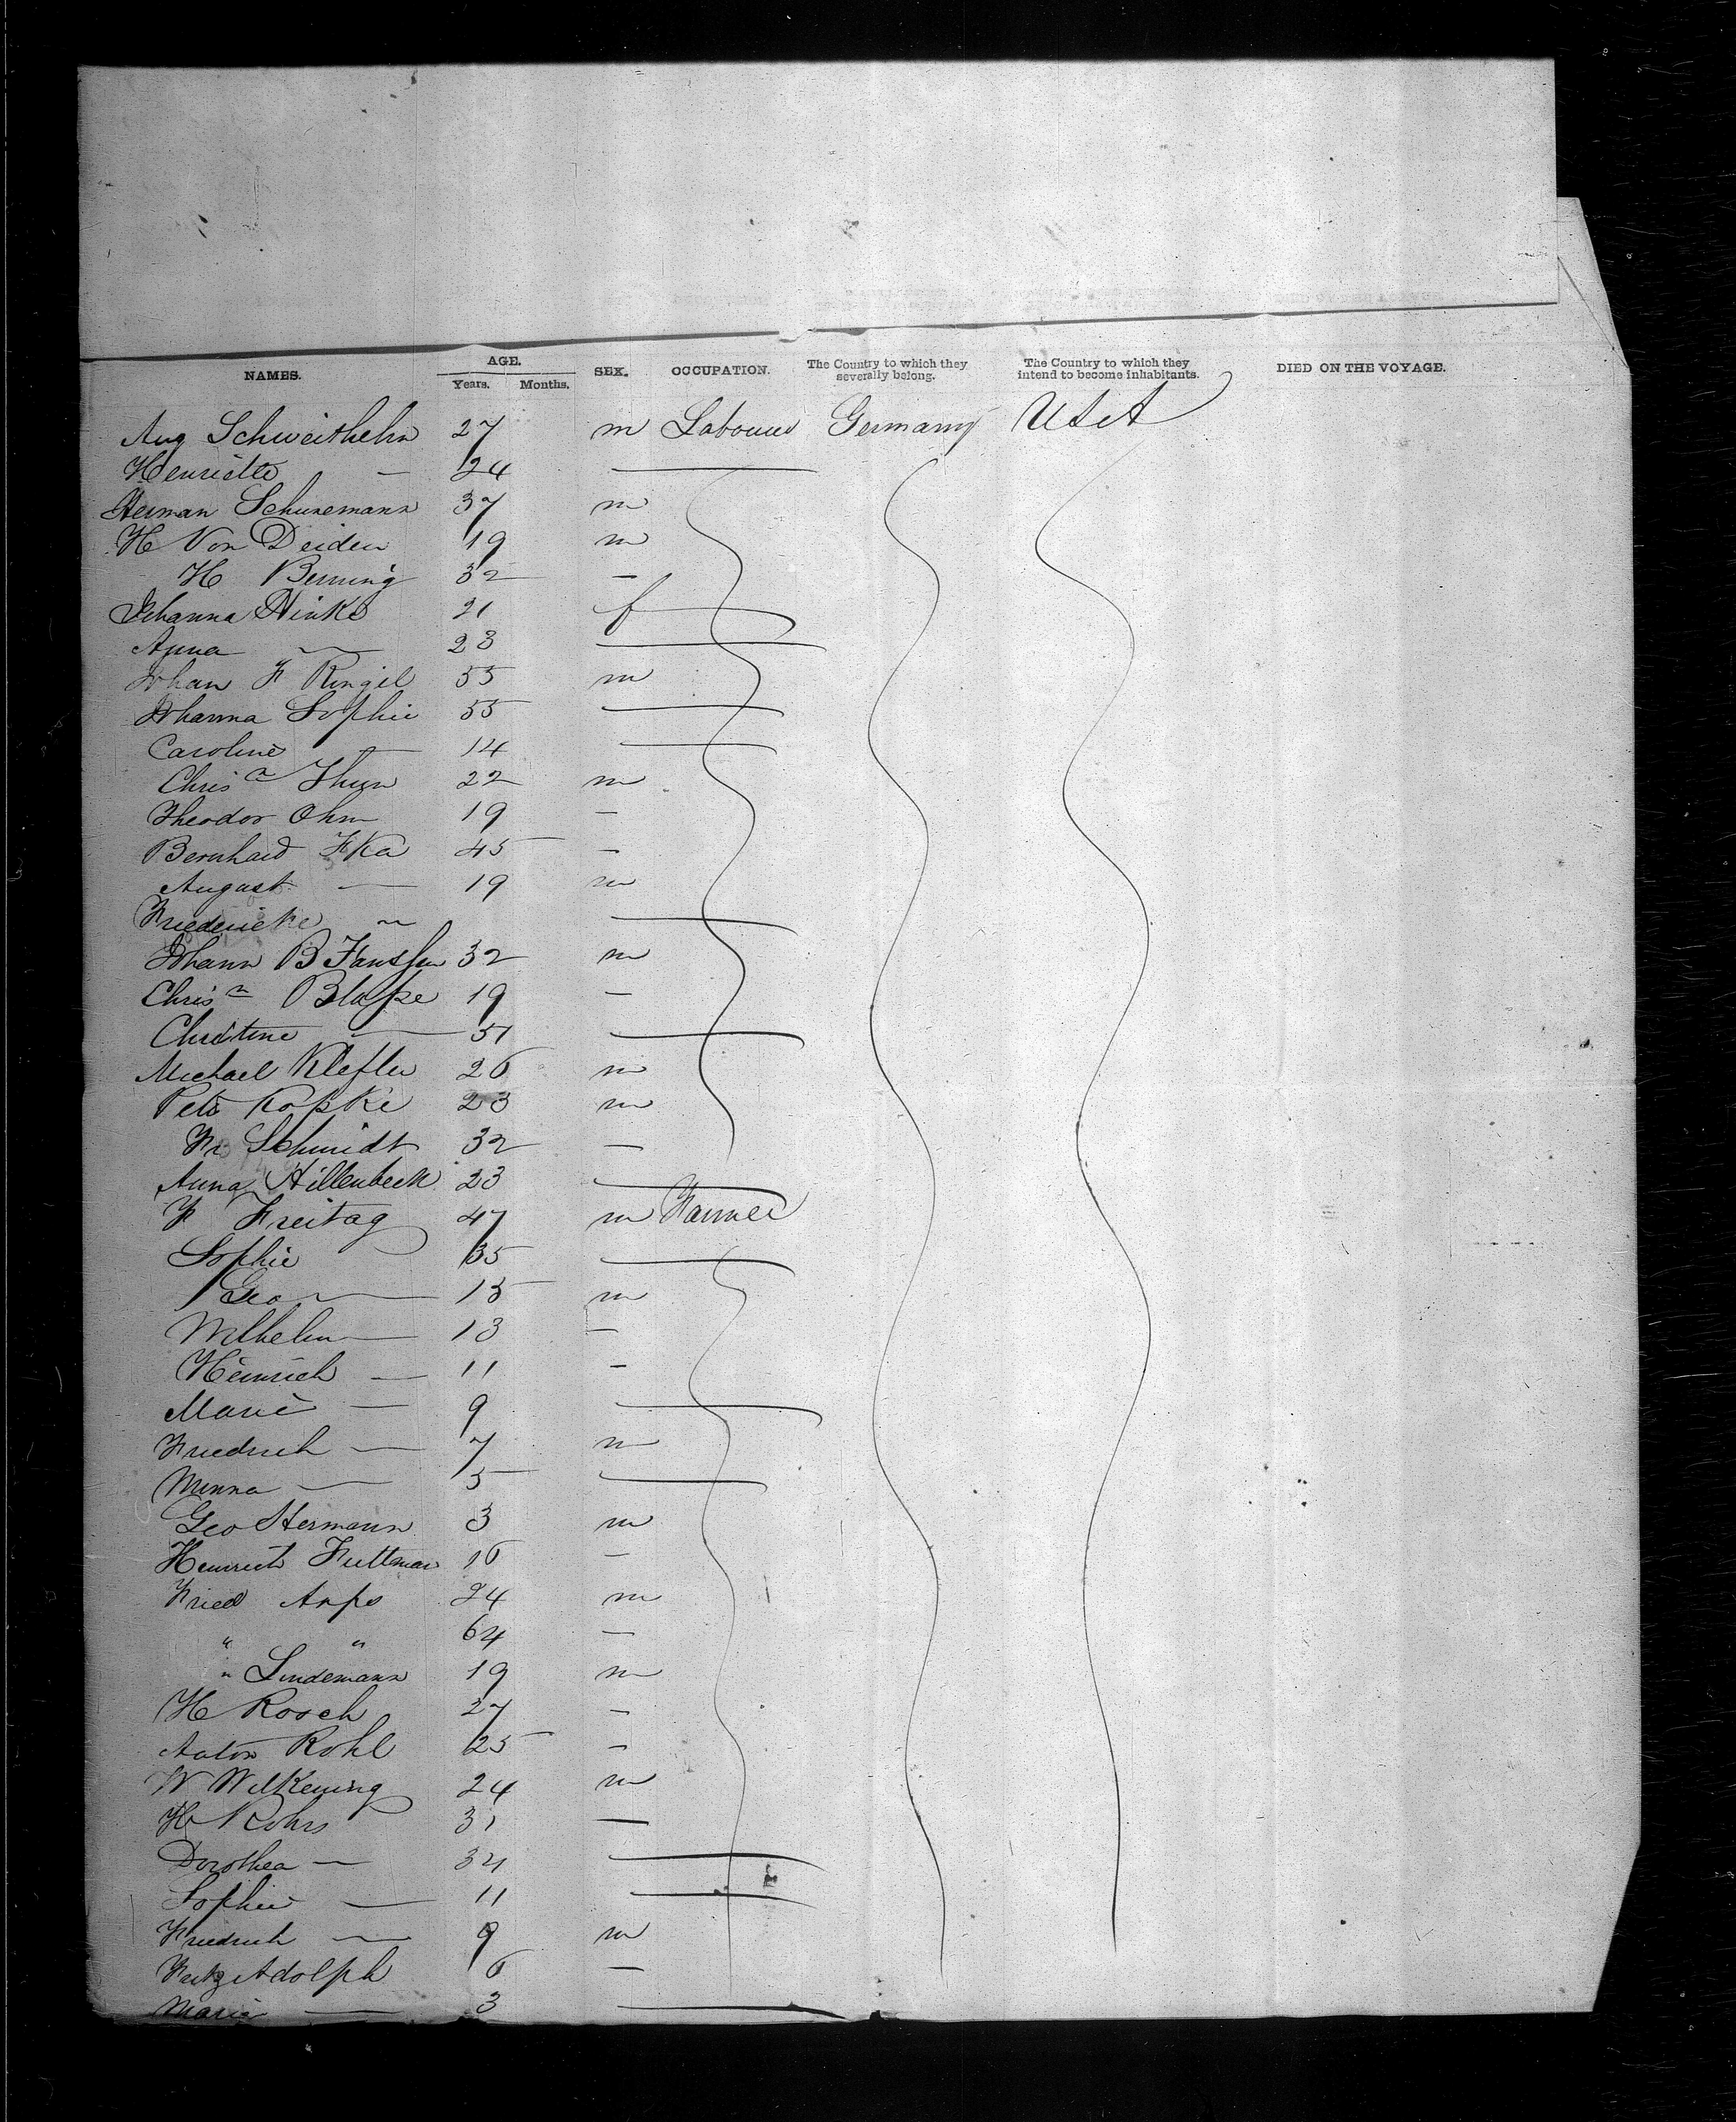 NAMES. AGE. SEX. OCCUPATION. The Country to which they severally belong. The Country to which they intend to become inhabitants. DIED ON THE VOYAGE.
Years. Months.
Aug Schweithelm 27 m Labourer Germany USA
Henriette — 24
Herman Schunemann 37 m
H Von Deiden 19 m
H Berning 32 —
Johanna Hinke 21 f
Anna — 23
Johan F Ringil 55 m
Johanna Sophie 55
Caroline — 14
Chris n Thun 22 m
Theodor Ohm 19 —
Bernhard 45 —
August — 19 m
Friedericke —
Johann B Janssen 32 m
Chris n 19 —
Christine — 51
Michael 26 m
Peter Kopke 23 m
Fr Schmidt 32 —
Anna Hillenbeck 23
F Freitag 47 m Farmer
Sophie 35
Geo — 15 m
Wilhelm — 13 —
Heinrich — 11 —
Marie — 9
Friedrich — 7 m
Minna — 5
Geo Hermann 3 m
Heinrich 16 —
Fried Arps 24 m
" " 64 —
" Lindemann 19 m
H Rosch 27 —
Anton Rohl 25 —
W Wilkening 24 m
H Rohrs 31 —
Dorothea — 34
Sophie — 11
Friedrich — 9 m
Fritz Adolph 6 —
Maria — 3